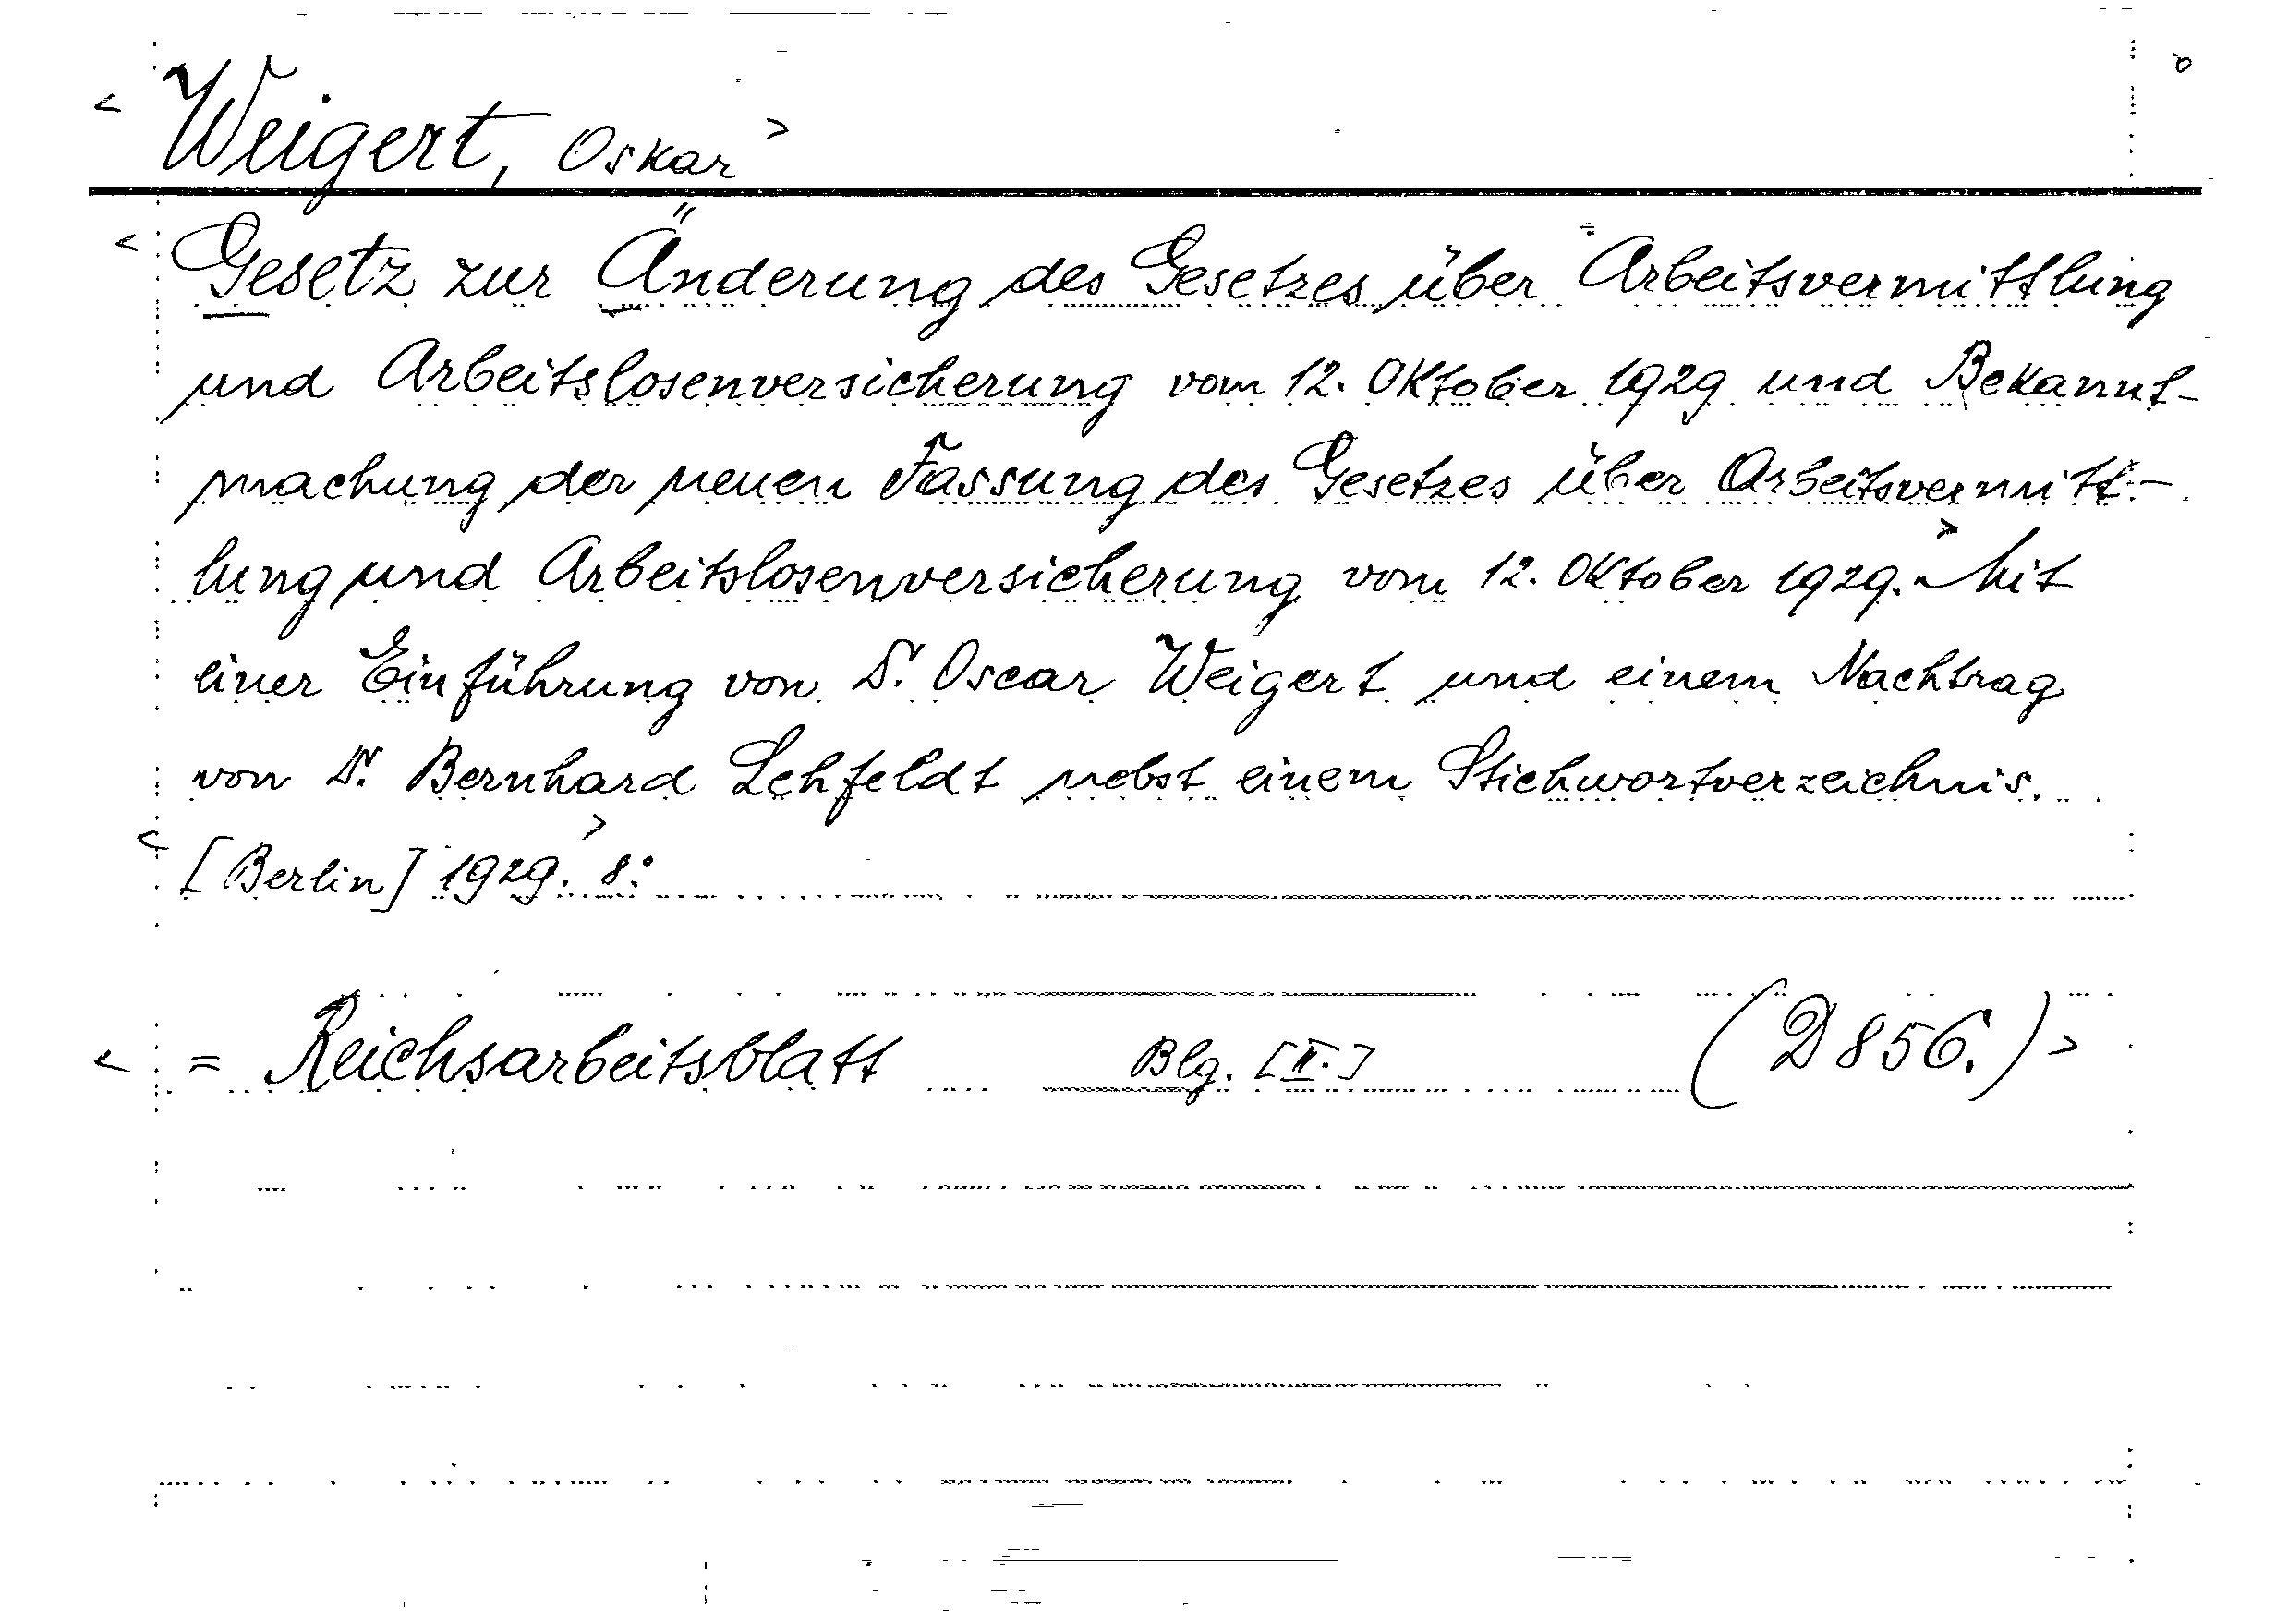 < Weigert, Oskar >
< Gesetz zur Änderung des Gesetzes über Arbeitsvermittlung
und Arbeitslosenversicherung vom 12. Oktober 1929 und Bekannt-
machung der neuen Fassung des Gesetzes über Arbeitsvermitt-
lung und Arbeitslosenversicherung vom 12. Oktober 1929. > Mit
einer Einführung von Dr. Oscar Weigert und einem Nachtrag
von Dr. Bernhard Lehfeldt nebst einem Stichwortverzeichnis.
< [Berlin] 1929. > 8°
< = Reichsarbeitsblatt Blg. [II.] (D 856.) >